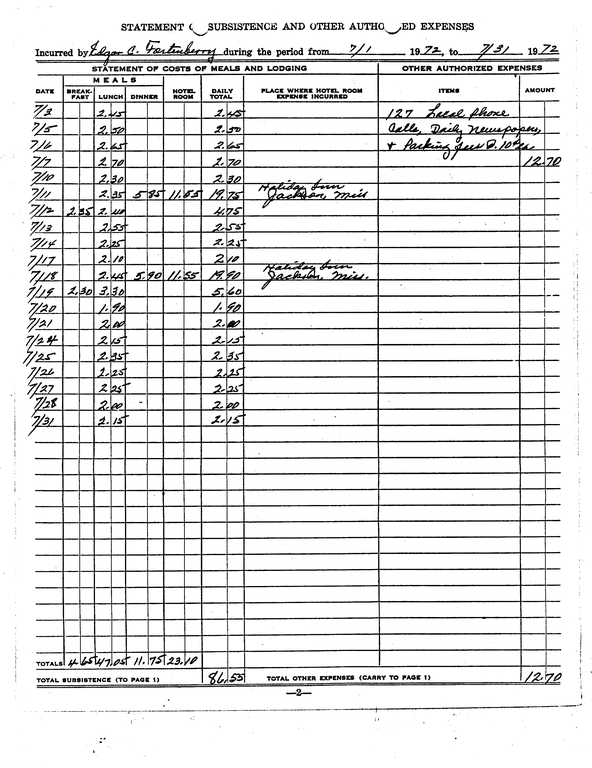 STATEMENT OF SUBSISTENCE AND OTHER AUTHO ED EXPENSES
Incurred by Edgar A. Fortenberry during the period from 7/1 1972, to 7/31 1972
STATEMENT OF COSTS OF MEALS AND LODGING OTHER AUTHORIZED EXPENSES
MEALS
DATE BREAK-FAST LUNCH DINNER HOTEL ROOM DAILY TOTAL PLACE WHERE HOTEL ROOM EXPENSE INCURRED ITEMS AMOUNT
7/3 2.45 2.45 127 Local phone
7/5 2.50 2.50 Calls, Daily newspapers,
7/6 2.65 2.65 + Parking fees @ 10¢ ea
7/7 2 70 2.70 12.70
7/10 2.30 2.30
7/11 2.35 5 85 11.55 19.75 Holiday Inn Jackson, Miss
7/12 2.35 2.40 4.75
7/13 2.55 2.55
7/14 2.25 2.25
7/17 2.10 2 10
7/18 2.45 5.90 11.55 19.90 Holiday Inn Jackson, Miss.
7/19 2.30 3.30 5.60
7/20 1.90 1.90
7/21 2.00 2.00
7/24 2.15 2.15
7/25 2.35 2.35
7/26 2.25 2.25
7/27 2 25 2.25
7/28 2.00 2.00
7/31 2.15 2.15
TOTALS 4.65 47.05 11.75 23.10
TOTAL SUBSISTENCE (TO PAGE 1) 86.55 TOTAL OTHER EXPENSES (CARRY TO PAGE 1) 12.70
—2—